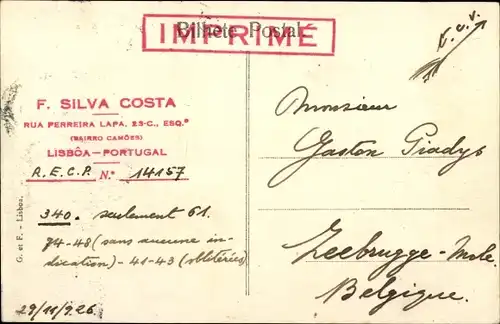 Bilhete Postal
IMPRIMÉ
T. C. V.
F. SILVA COSTA
RUA FERREIRA LAPA, 25-C., ESQ.º
(BAIRRO CAMÕES)
LISBÔA—PORTUGAL
R.E.C.P. N.º 14157
340. seulement 61.
74-48 (sans aucune in-
dication) - 41-43 (oblitérés)
29/11/926
G. et F. - Lisboa.
Monsieur
Gaston Giadys
Zeebrugge-Mole
Belgique.